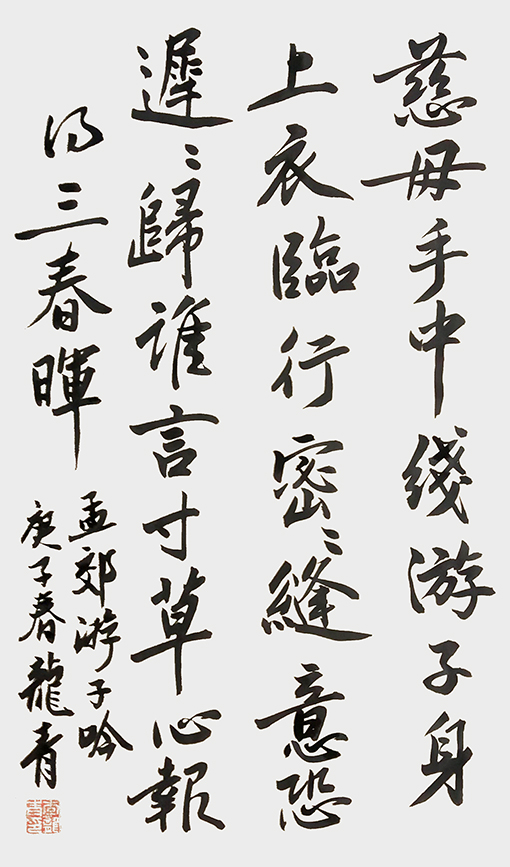 慈母手中綫游子身
上衣臨行密〻縫意恐
遲〻歸誰言寸草心報
得三春暉
孟郊游子吟
庚子春龍青